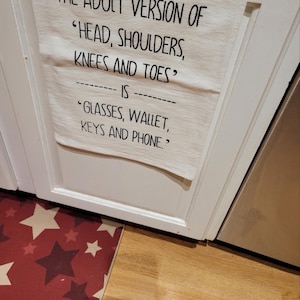 THE ADULT VERSION OF
"HEAD, SHOULDERS,
KNEES AND TOES"
IS
"GLASSES, WALLET,
KEYS AND PHONE."